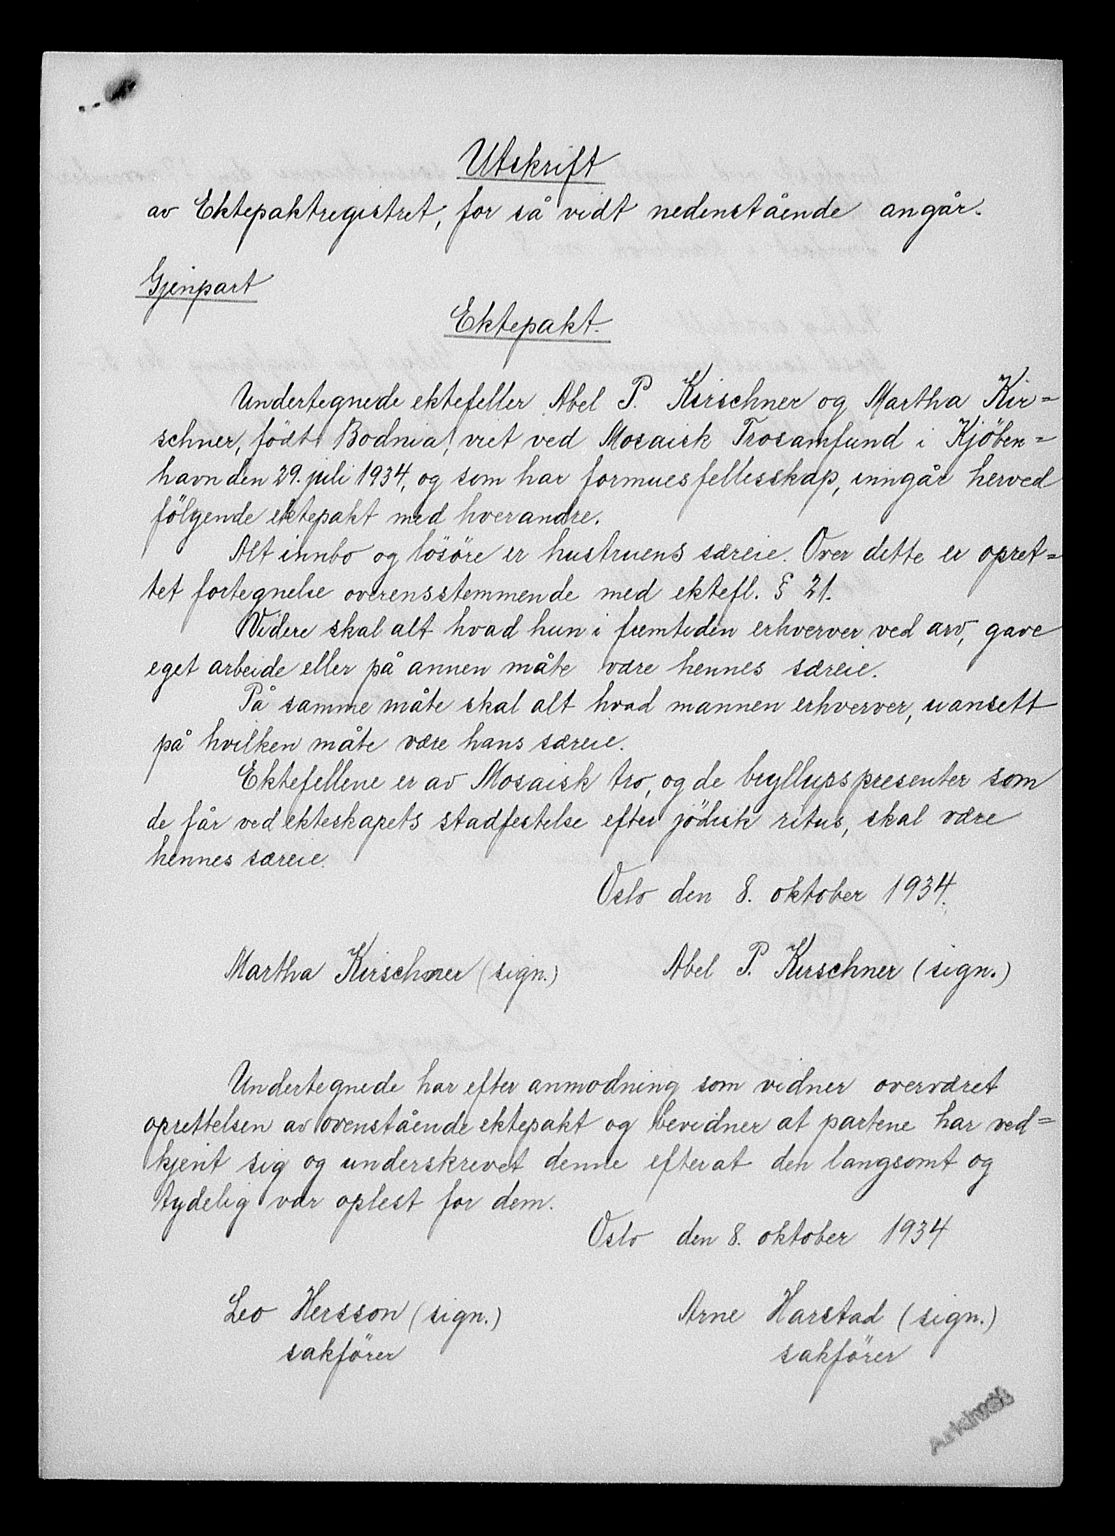 Utskrift
av Ektepaktregistret, for så vidt nedenstående angår.
Gjenpart
Ektepakt.
Undertegnede ektefeller Abel P. Kirschner og Martha Kir=
schner, født Bodnia, viet ved Mosaisk Trosamfund i Kjöben=
havn den 29. juli 1934, og som har formuesfellesskap, inngår herved
fölgende ektepakt med hverandre.
Alt innbo og lösöre er hustruens særeie. Over dette er opret=
tet fortegnelse overensstemmende med ektefl. § 21.
Videre skal alt hvad hun i fremtiden erhverver ved arv, gave
eget arbeide eller på annen måte være hennes særeie.
På samme måte skal alt hvad mannen erhverver, uansett
på hvilken måte være hans særeie.
Ektefellene er av Mosaisk tro, og de bryllupspresenter som
de får ved ekteskapets stadfestelse efter jödisk ritus, skal være
hennes særeie.
Oslo den 8. oktober 1934.
Martha Kirschner (sign.) Abel P. Kirschner (sign.)
Undertegnede har efter anmodning som vidner overværet
oprettelsen av ovenstående ektepakt og bevidner at partene har ved=
kjent sig og underskrevet denne efterat den langsomt og
tydelig var oplest for dem.
Oslo den 8. oktober 1934
Leo Hersson (sign.) Arne Harstad (sign.)
sakförer sakförer